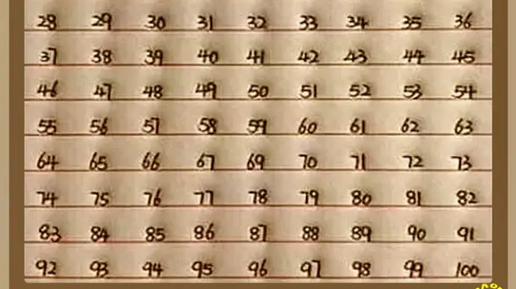 28 29 30 31 32 33 34 35 36
37 38 39 40 41 42 43 44 45
46 47 48 49 50 51 52 53 54
55 56 57 58 59 60 61 62 63
64 65 66 67 69 70 71 72 73
74 75 76 77 78 79 80 81 82
83 84 85 86 87 88 89 90 91
92 93 94 95 96 97 98 99 100